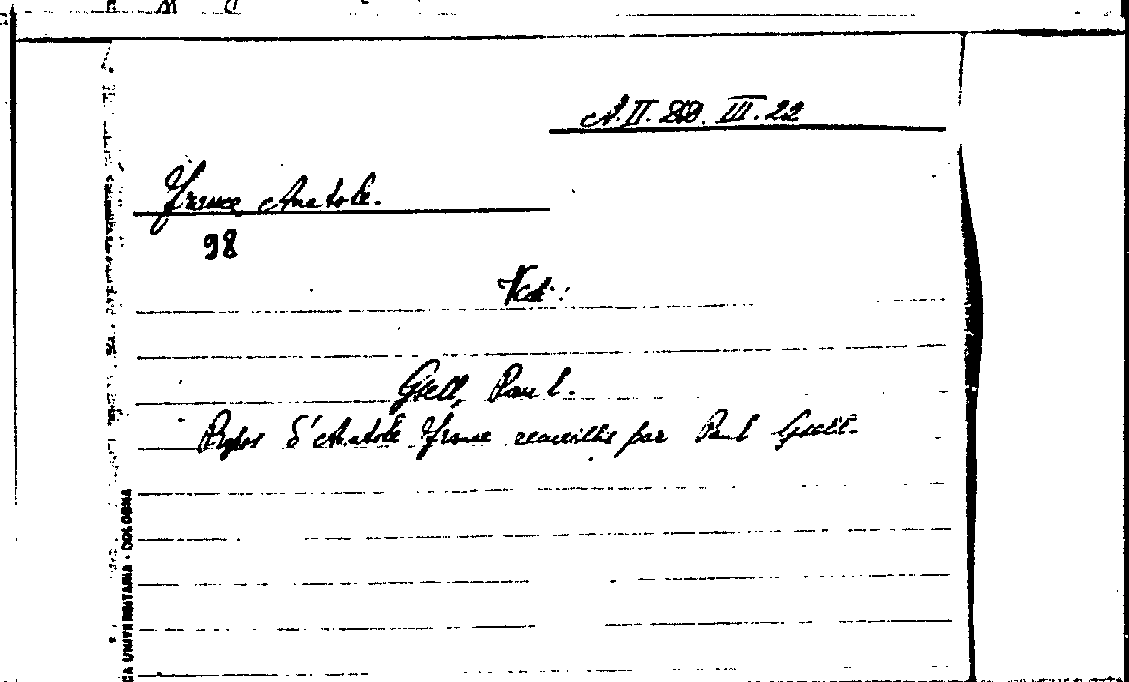 A.II.DD.III.22
France Anatole.
98
Ved.:
Gsell Paul.
Propos d'Anatole France recueillis par Paul Gsell.
UNIVERSITARIA - BOLOGNA